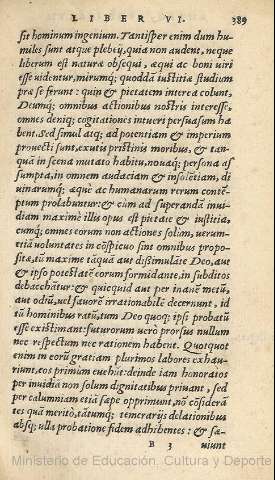 LIBER VI. 389
sit hominum ingenium. Tantisper enim dum hu-
miles sunt atque plebeij, quia non audent, neque
liberum est naturæ obsequi, æqui ac boni viri
esse uidentur, mirumq; quoddã iustitiæ studium
præ se ferunt: quin & pietatem interea colunt,
Deumq; omnibus actionibus nostris interesse,
omnes deniq; cogitationes intueri persuasum ha
bent. Sed simul atq; ad potentiam & imperium
prouecti sunt, exutis pristinis moribus, & tan-
quã in scena mutato habitu, nouaq; persona as
sumpta, in omnem audaciam & insolẽtiam, di
uinarumq; æquè ac humanarum rerum contẽ-
ptum prolabuntur: & cùm ad superandã inui-
diam maximè illis opus est pietate & iustitia,
cumq; omnes eorum non actiones solùm, uerum-
etiã uoluntates in cõspicuo sint omnibus propo-
sitæ, tũ maxime tãquã aut dißimulãte Deo, aut
& ipso potestatẽ eorum formidante, in subditos
debacchãtur: & quicquid aut per inanẽ metũ,
aut odiũ, uel fauorẽ irrationabilẽ decernunt, id
tũ hominibus ratũ, tum Deo quoq; ipsi probatũ
esse existimant: futurorum uerò prorsus nullum
nec respectum nec rationem habent. Quotquot
enim in eorũ gratiam plurimos labores exhau-
riunt, eos primùm euehũt: deinde iam honoratos
per inuidiã non solum dignitatibus priuant, sed
per calumniam etiã sæpe opprimunt, nõ cõsiderã
tes quã meritò, tãtumq; temerarijs delationibus
absq; ulla probatione fidem adhibentes: & sæ-
B 3 uiunt
Ministerio de Educación, Cultura y Deporte